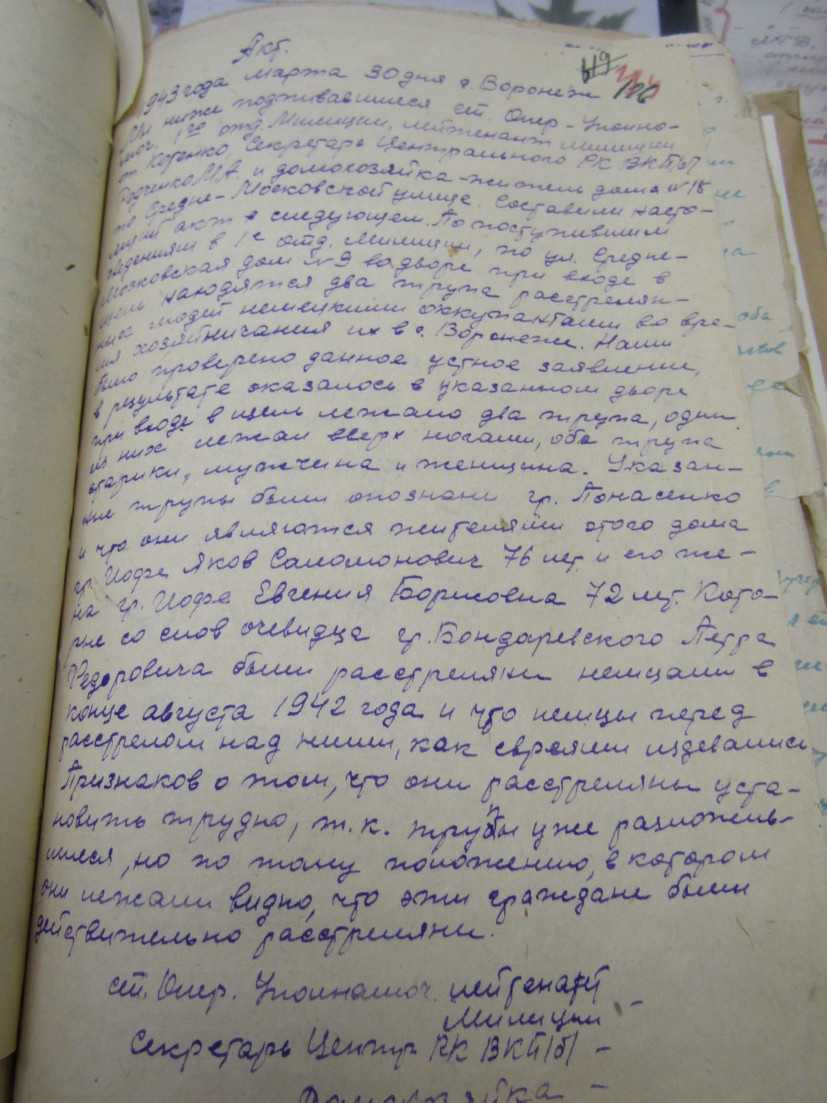 Акт.
119
126
1943 года марта 30 дня г. Воронеж
Мы ниже подписавшиеся ст. Опер-Уполно-
моч. 1го отд. Милиции, лейтенант милиции
т. Котенко, Секретарь Центрального РК ВКП(б)
Родченко М.А. и домохозяйка-житель дома №18
по Средне-Московской улице. Составили насто-
ящий акт в следующем. По поступившим
сведениям в 1е отд. Милиции, по ул. Средне-
Московская дом №9 во дворе при входе в
щель находятся два трупа расстрелян-
ных людей немецкими оккупантами во вре-
мя хозяйничания их в г. Воронеже. Нами
было проверено данное устное заявление,
в результате оказалось в указанном дворе
при входе в щель лежало два трупа, один
из них лежал вверх ногами, оба трупа
старики, мужчина и женщина. Указан-
ные трупы были опознаны гр. Понасенко
и что они являются жителями этого дома
гр. Иофе Яков Саломонович 76 лет и его же-
на гр. Иофе Евгения Борисовна 72 лет. Кото-
рые со слов очевидца гр. Бондаревского Петра
Федоровича были расстреляны немцами в
конце августа 1942 года и что немцы перед
расстрелом над ними, как евреями издевались
Признаков о том, что они расстреляны уста-
новить трудно, т.к. трупы уже разложив-
шиеся, но по тому положению, в котором
они лежали видно, что эти граждане были
действительно расстреляны.
ст. Опер. Уполномоч. лейтенант
Милиции –
Секретарь Центр РК ВКП(б) –
Домохозяйка –